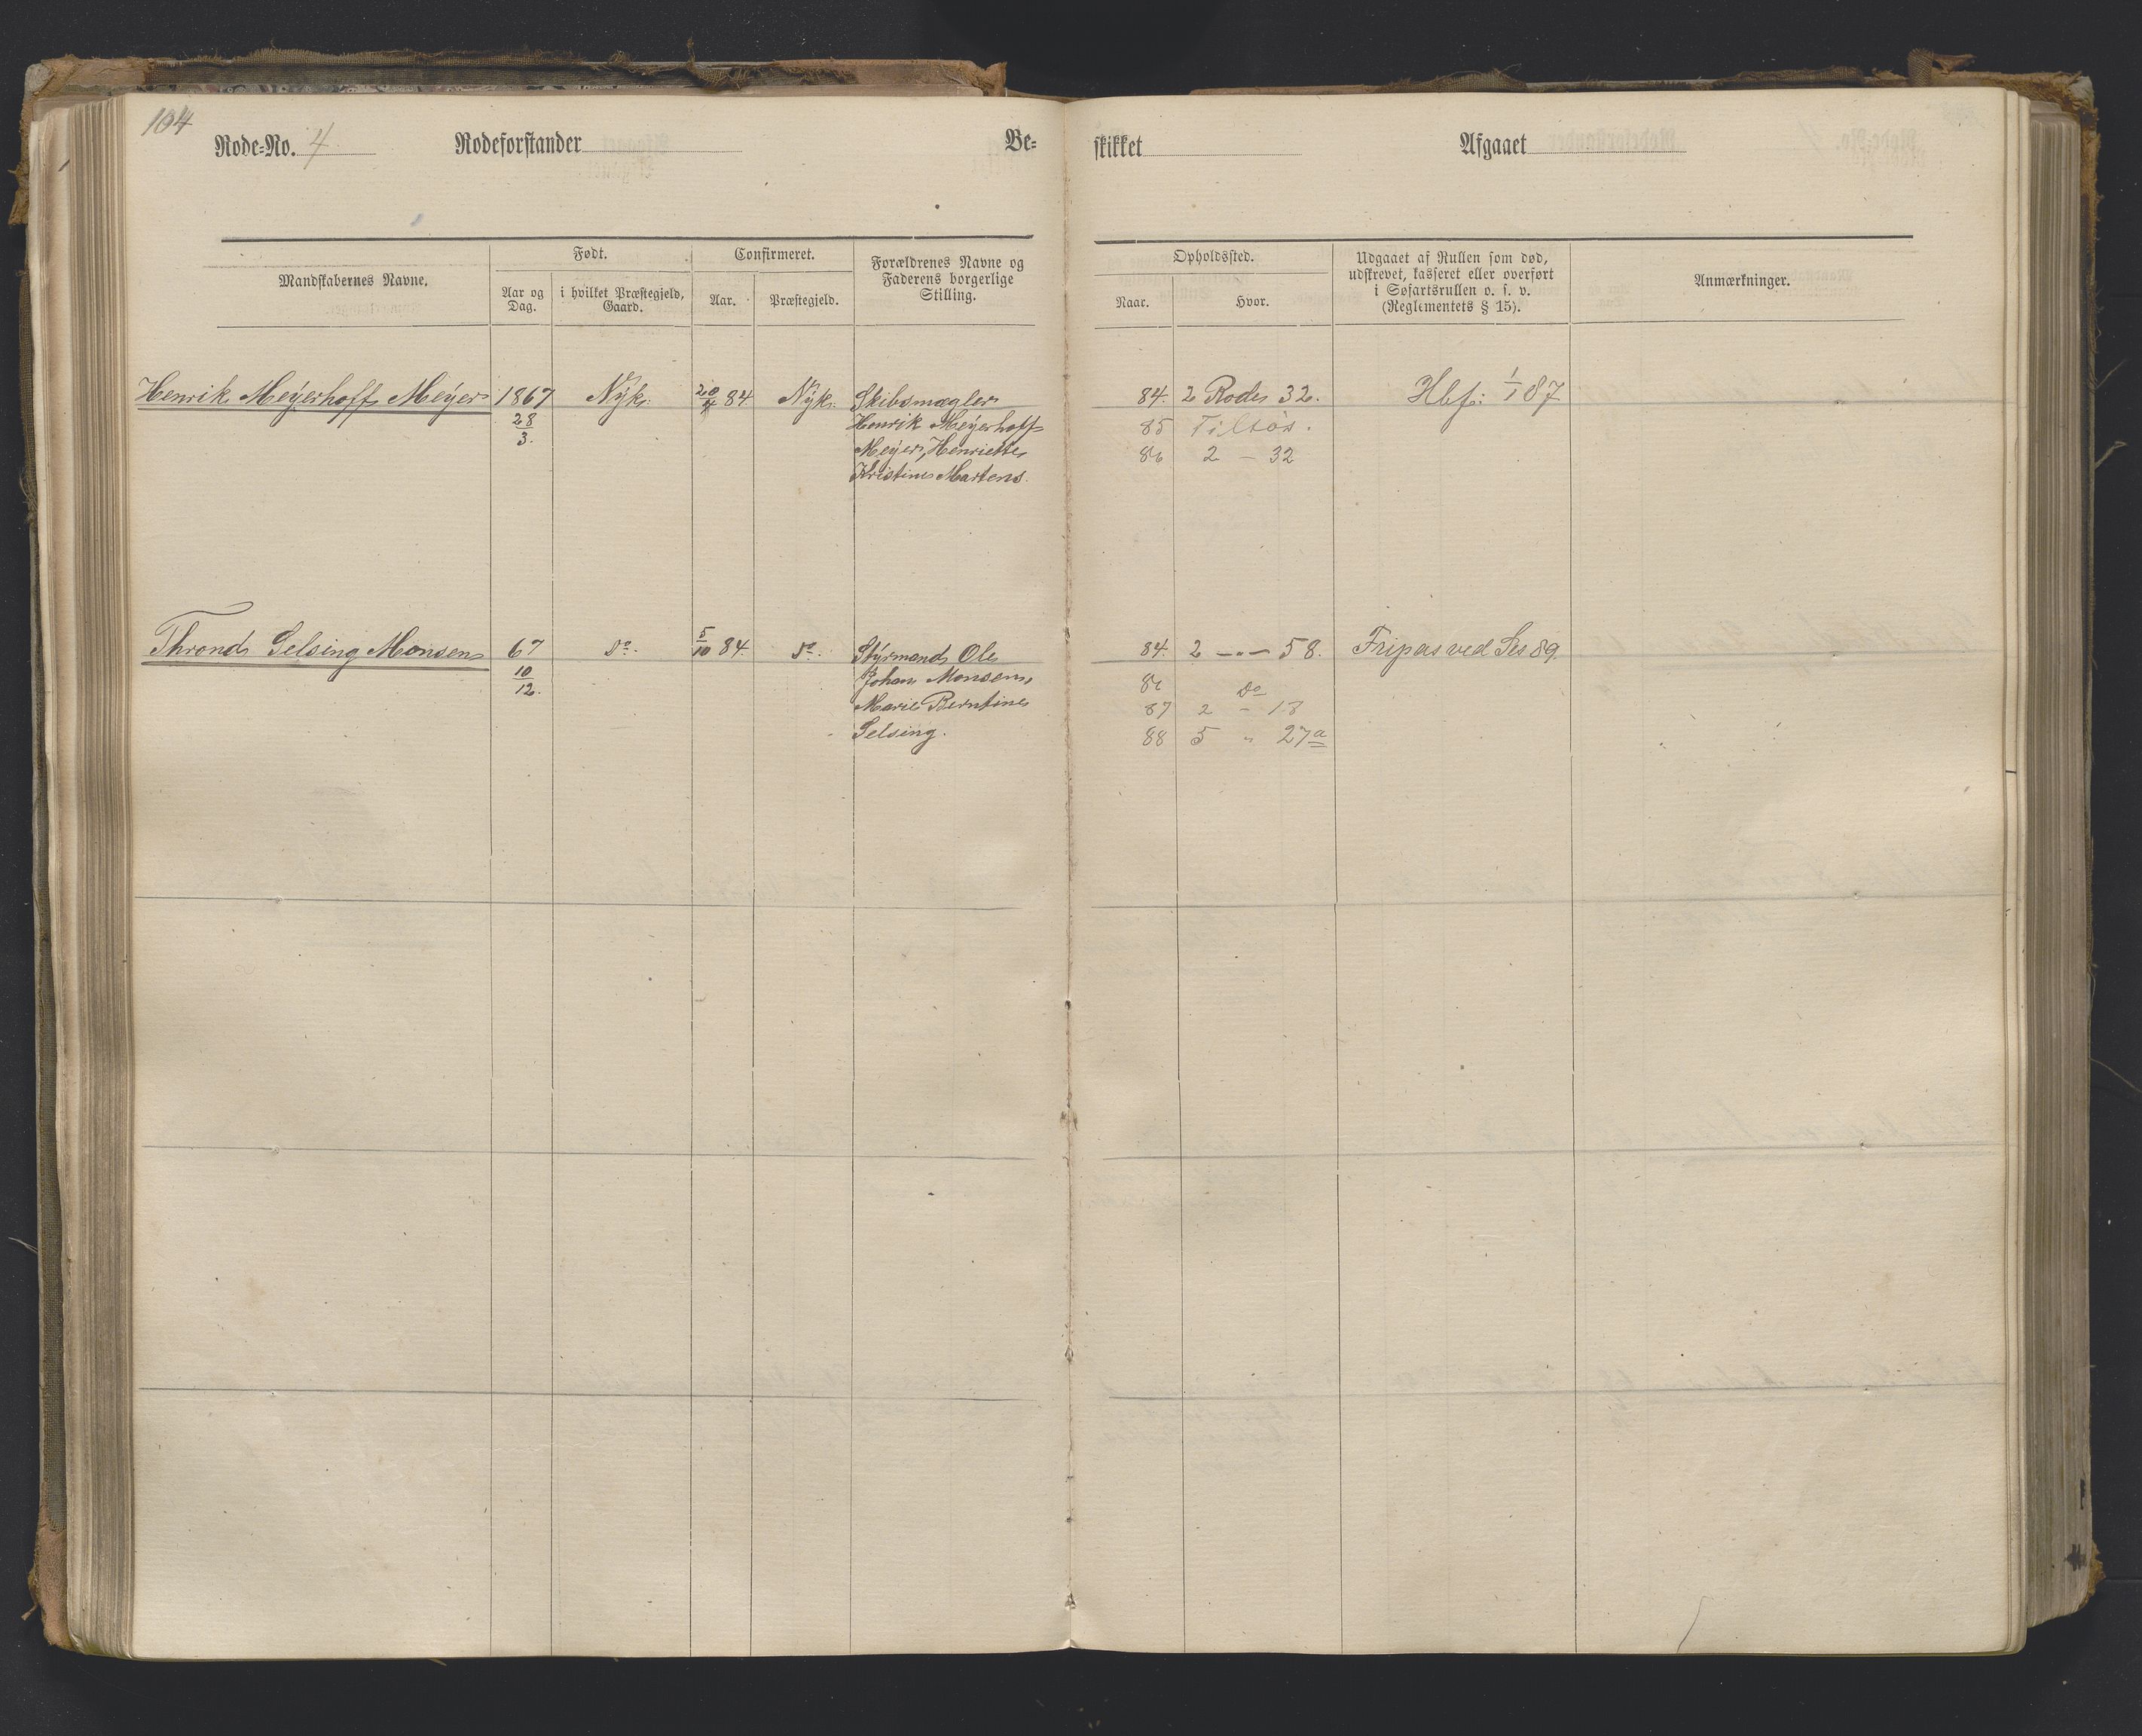 104
Rode-No. 4 Rodeforstander Be- skikket Afgaaet
Mandskabernes Navne. Født. Confirmeret. Forældrenes Navne og Faderens borgerlige Stilling. Opholdssted. Udgaaet af Rullen som død, udskrevet, kasseret eller overført i Søfartsrullen o. s. v. (Reglementets § 15). Anmærkninger.
Aar og Dag. i hvilket Præstegjeld, Gaard. Aar. Præstegjeld. Naar. Hvor.
Henrik Meyerhoff Meyer 1867 Nyk. 84 Nyk. Skibsmægler 84. 2 Rode 32. Hbf: 1/1 87
28/3. Henrik Meyerhoff 85 Tilsøs.
Meyer, Henriette 86 2 — 32
Kristine Martens.
Thrond Selsing Monsen 67 Do. 5/10 84. Do. Styrmand Ole 84. 2 —"— 58. Fripas ved Ses 89.
10/12. Johan Monsen, 86 Do
Marie Berntine 87 2 - 18
Selsing. 88 5 " 27a